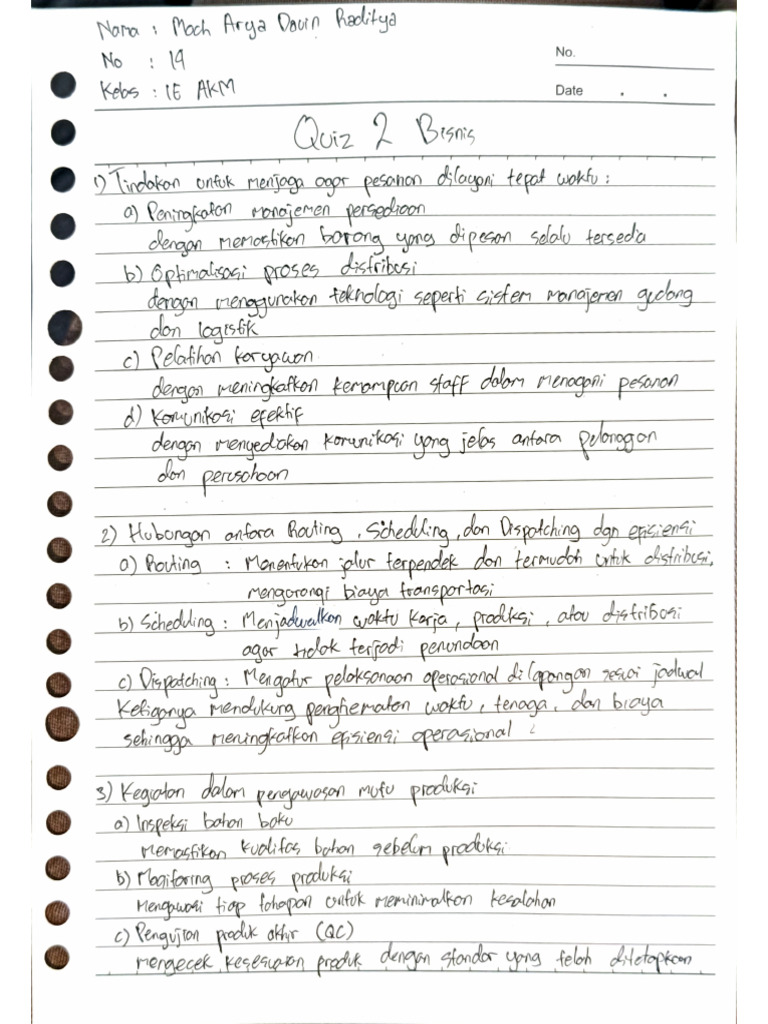 Nama : Moch Arya Davin Raditya
No : 19
Kelas : 1E AKM
No.
Date . .
Quiz 2 Bisnis
1) Tindakan untuk menjaga agar pesanan dilayani tepat waktu :
a) Peningkatan manajemen persediaan
dengan memastikan barang yang dipesan selalu tersedia
b) Optimalisasi proses distribusi
dengan menggunakan teknologi seperti sistem manajemen gudang
dan logistik
c) Pelatihan karyawan
dengan meningkatkan kemampuan staff dalam menangani pesanan
d) Komunikasi efektif
dengan menyediakan komunikasi yang jelas antara pelanggan
dan perusahaan
2) Hubungan antara Routing, Schedulling, dan Dispatching dgn efisiensi
a) Routing : Menentukan jalur terpendek dan termudah untuk distribusi,
mengurangi biaya transportasi
b) Schedulling : Menjadwalkan waktu kerja, produksi, atau distribusi
agar tidak terjadi penundaan
c) Dispatching : Mengatur pelaksanaan operasional dilapangan sesuai jadwal
Ketiganya mendukung penghematan waktu, tenaga, dan biaya
sehingga meningkatkan efisiensi operasional
3) Kegiatan dalam pengawasan mutu produksi
a) Inspeksi bahan baku
memastikan kualitas bahan sebelum produksi
b) Monitoring proses produksi
Mengawasi tiap tahapan untuk meminimalkan kesalahan
c) Pengujian produk akhir (QC)
mengecek kesesuaian produk dengan standar yang telah ditetapkan